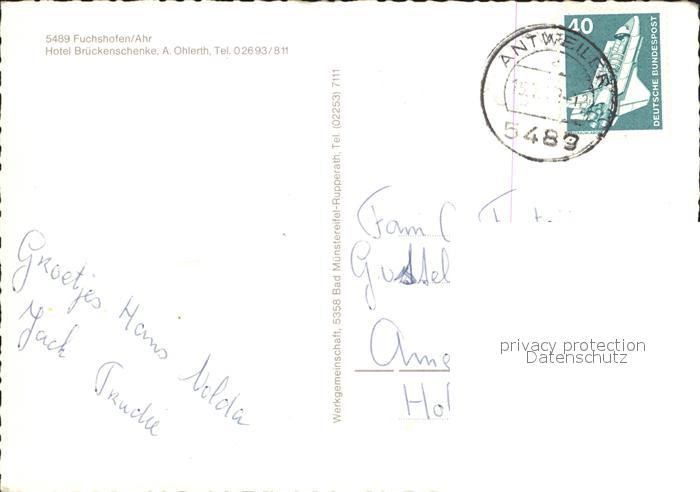 5489 Fuchshofen/Ahr
Hotel Brückenschenke, A. Ohlerth, Tel. 02693/811
Werkgemeinschaft, 5358 Bad Münstereifel-Rupperath, Tel. (02253) 7111
40
DEUTSCHE BUNDESPOST
ANTWEILER
5489
Fam
Gussel
Ame
Hol
privacy protection
Datenschutz
Groetjes Hans Nolda
Jack Trudie